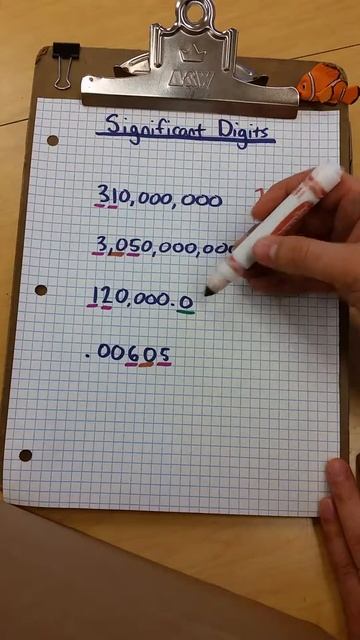 Significant Digits
310,000,000
3,050,000,000
120,000.0
.00605